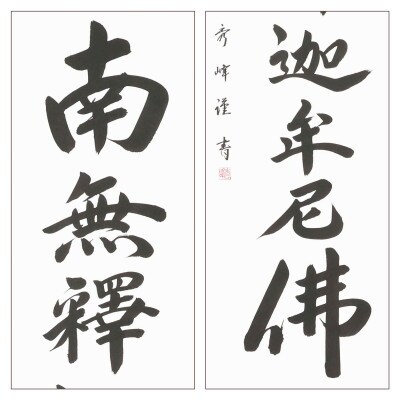 南無釋
迦牟尼佛
秀峰謹書